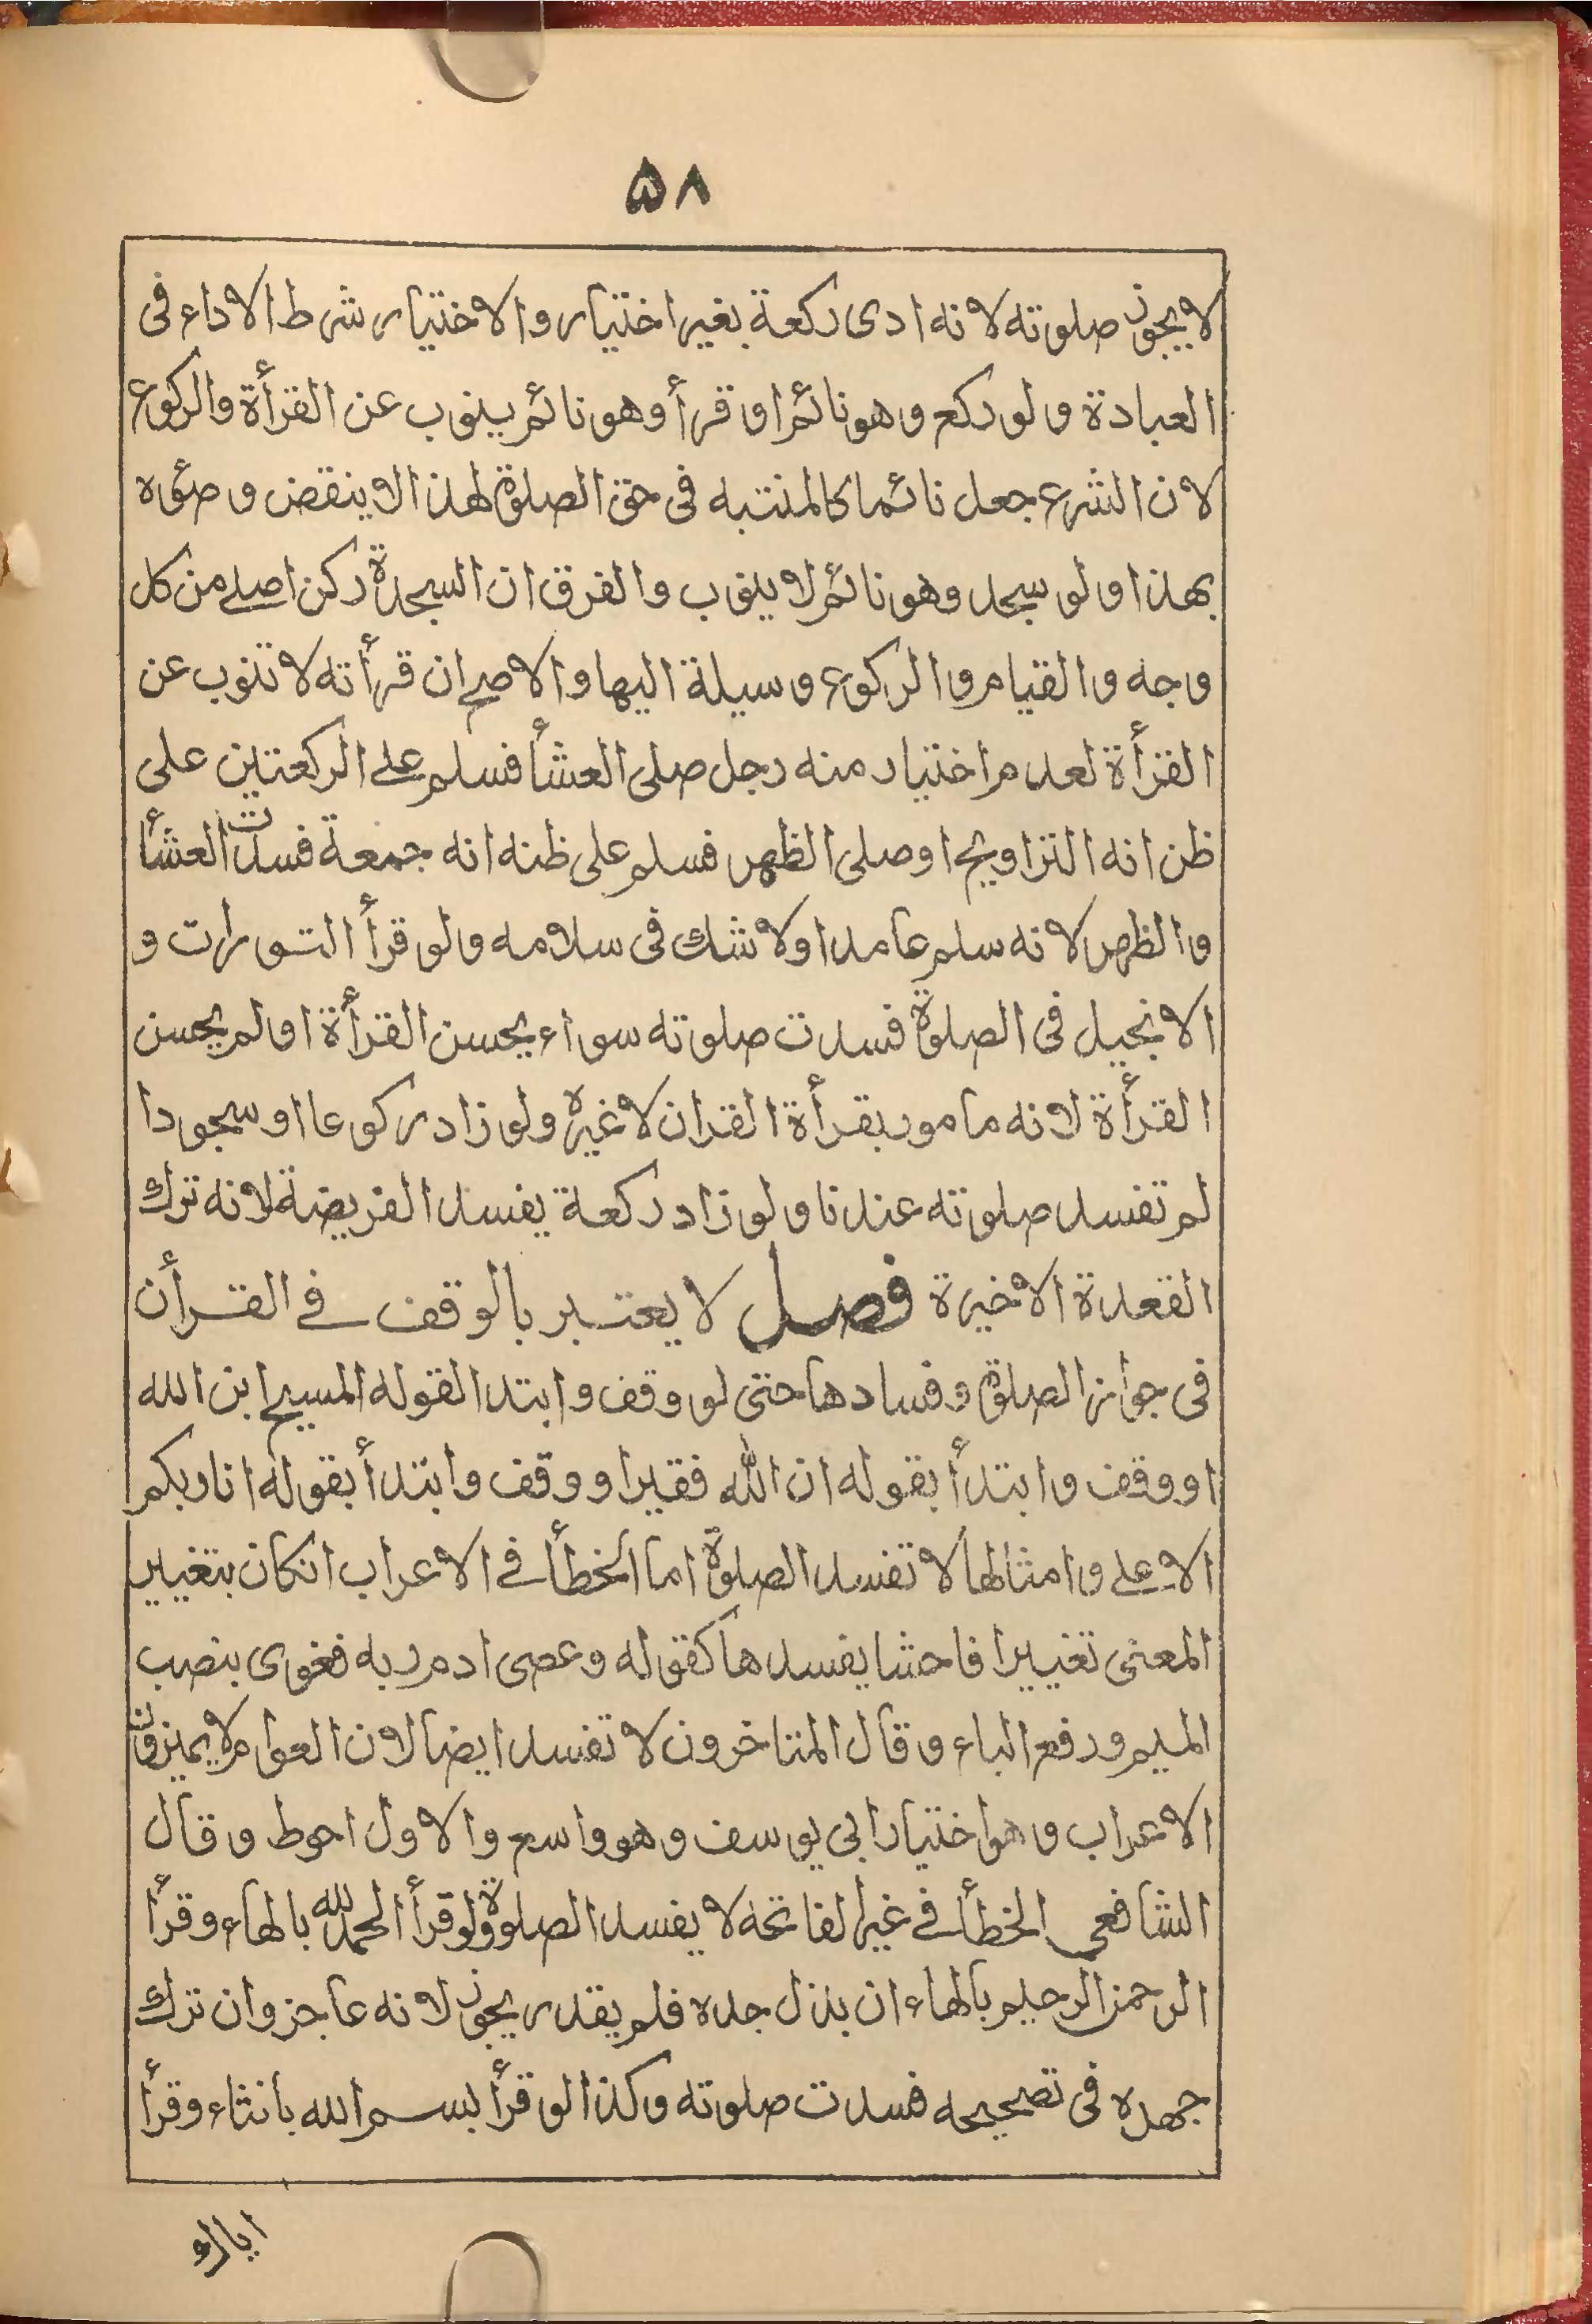 ۵۸
لا يجوز صلوته لانه ادى ركعة بغير اختيار والاختيار شرط الاداء فى
العبادة ولو ركع وهو نائم او قرأ وهو نائم ينوب عن القرأة والركوع
لان الشرع جعل نائما كالمنتبه فى حق الصلوة لهذا لا ينقض وضوئه
بهذا ولو سجد وهو نائم لا ينوب والفرق ان السجدة ركن اصلے من كل
وجه والقيام والركوع وسيلة اليها والاصح ان قرأته لا تنوب عن
القرأة لعدم اختيار منه رجل صلى العشأ فسلم علے الركعتين على
ظن انه التراويح او صلى الظهر فسلم على ظنه انه جمعة فسدت العشأ
والظهر لانه سلم عامدا ولا شك فى سلامه ولو قرأ التورات و
الانجيل فى الصلوة فسدت صلوته سواء يحسن القرأة او لم يحسن
القرأة لانه مامور بقرأة القران لا غيره ولو زاد ركوعا او سجودا
لم تفسد صلوته عندنا ولو زاد ركعة يفسد الفريضة لانه ترك
القعدة الاخيرة فصل لا يعتبر بالوقف فے القرأن
فى جواز الصلوة وفسادها حتى لو وقف وابتدا لقوله المسيح ابن الله
او وقف وابتدأ بقوله ان الله فقير او وقف وابتدأ بقوله انا ربكم
الاعلے وامثالها لا تفسد الصلوة اما الخطأ فے الاعراب انكان بتغيير
المعنى تغييرا فاحشا يفسدها كقوله وعصى ادم ربه فغوى بنصب
الميم ورفع الباء وقال المتاخرون لا تفسد ايضا لان العوام لا يميزون
الاعراب وهو اختيار ابى يوسف وهو واسع والاول احوط وقال
الشافعى الخطأ فے غير الفاتحة لا يفسد الصلوة ولو قرأ الحمد لله بالهاء وقرأ
الرحمن الرحيم بالهاء ان بذل جده فلم يقدر يجوز لانه عاجز وان ترك
جهده فى تصحيحه فسدت صلوته وكذا لو قرأ بسم الله بانثاء وقرأ